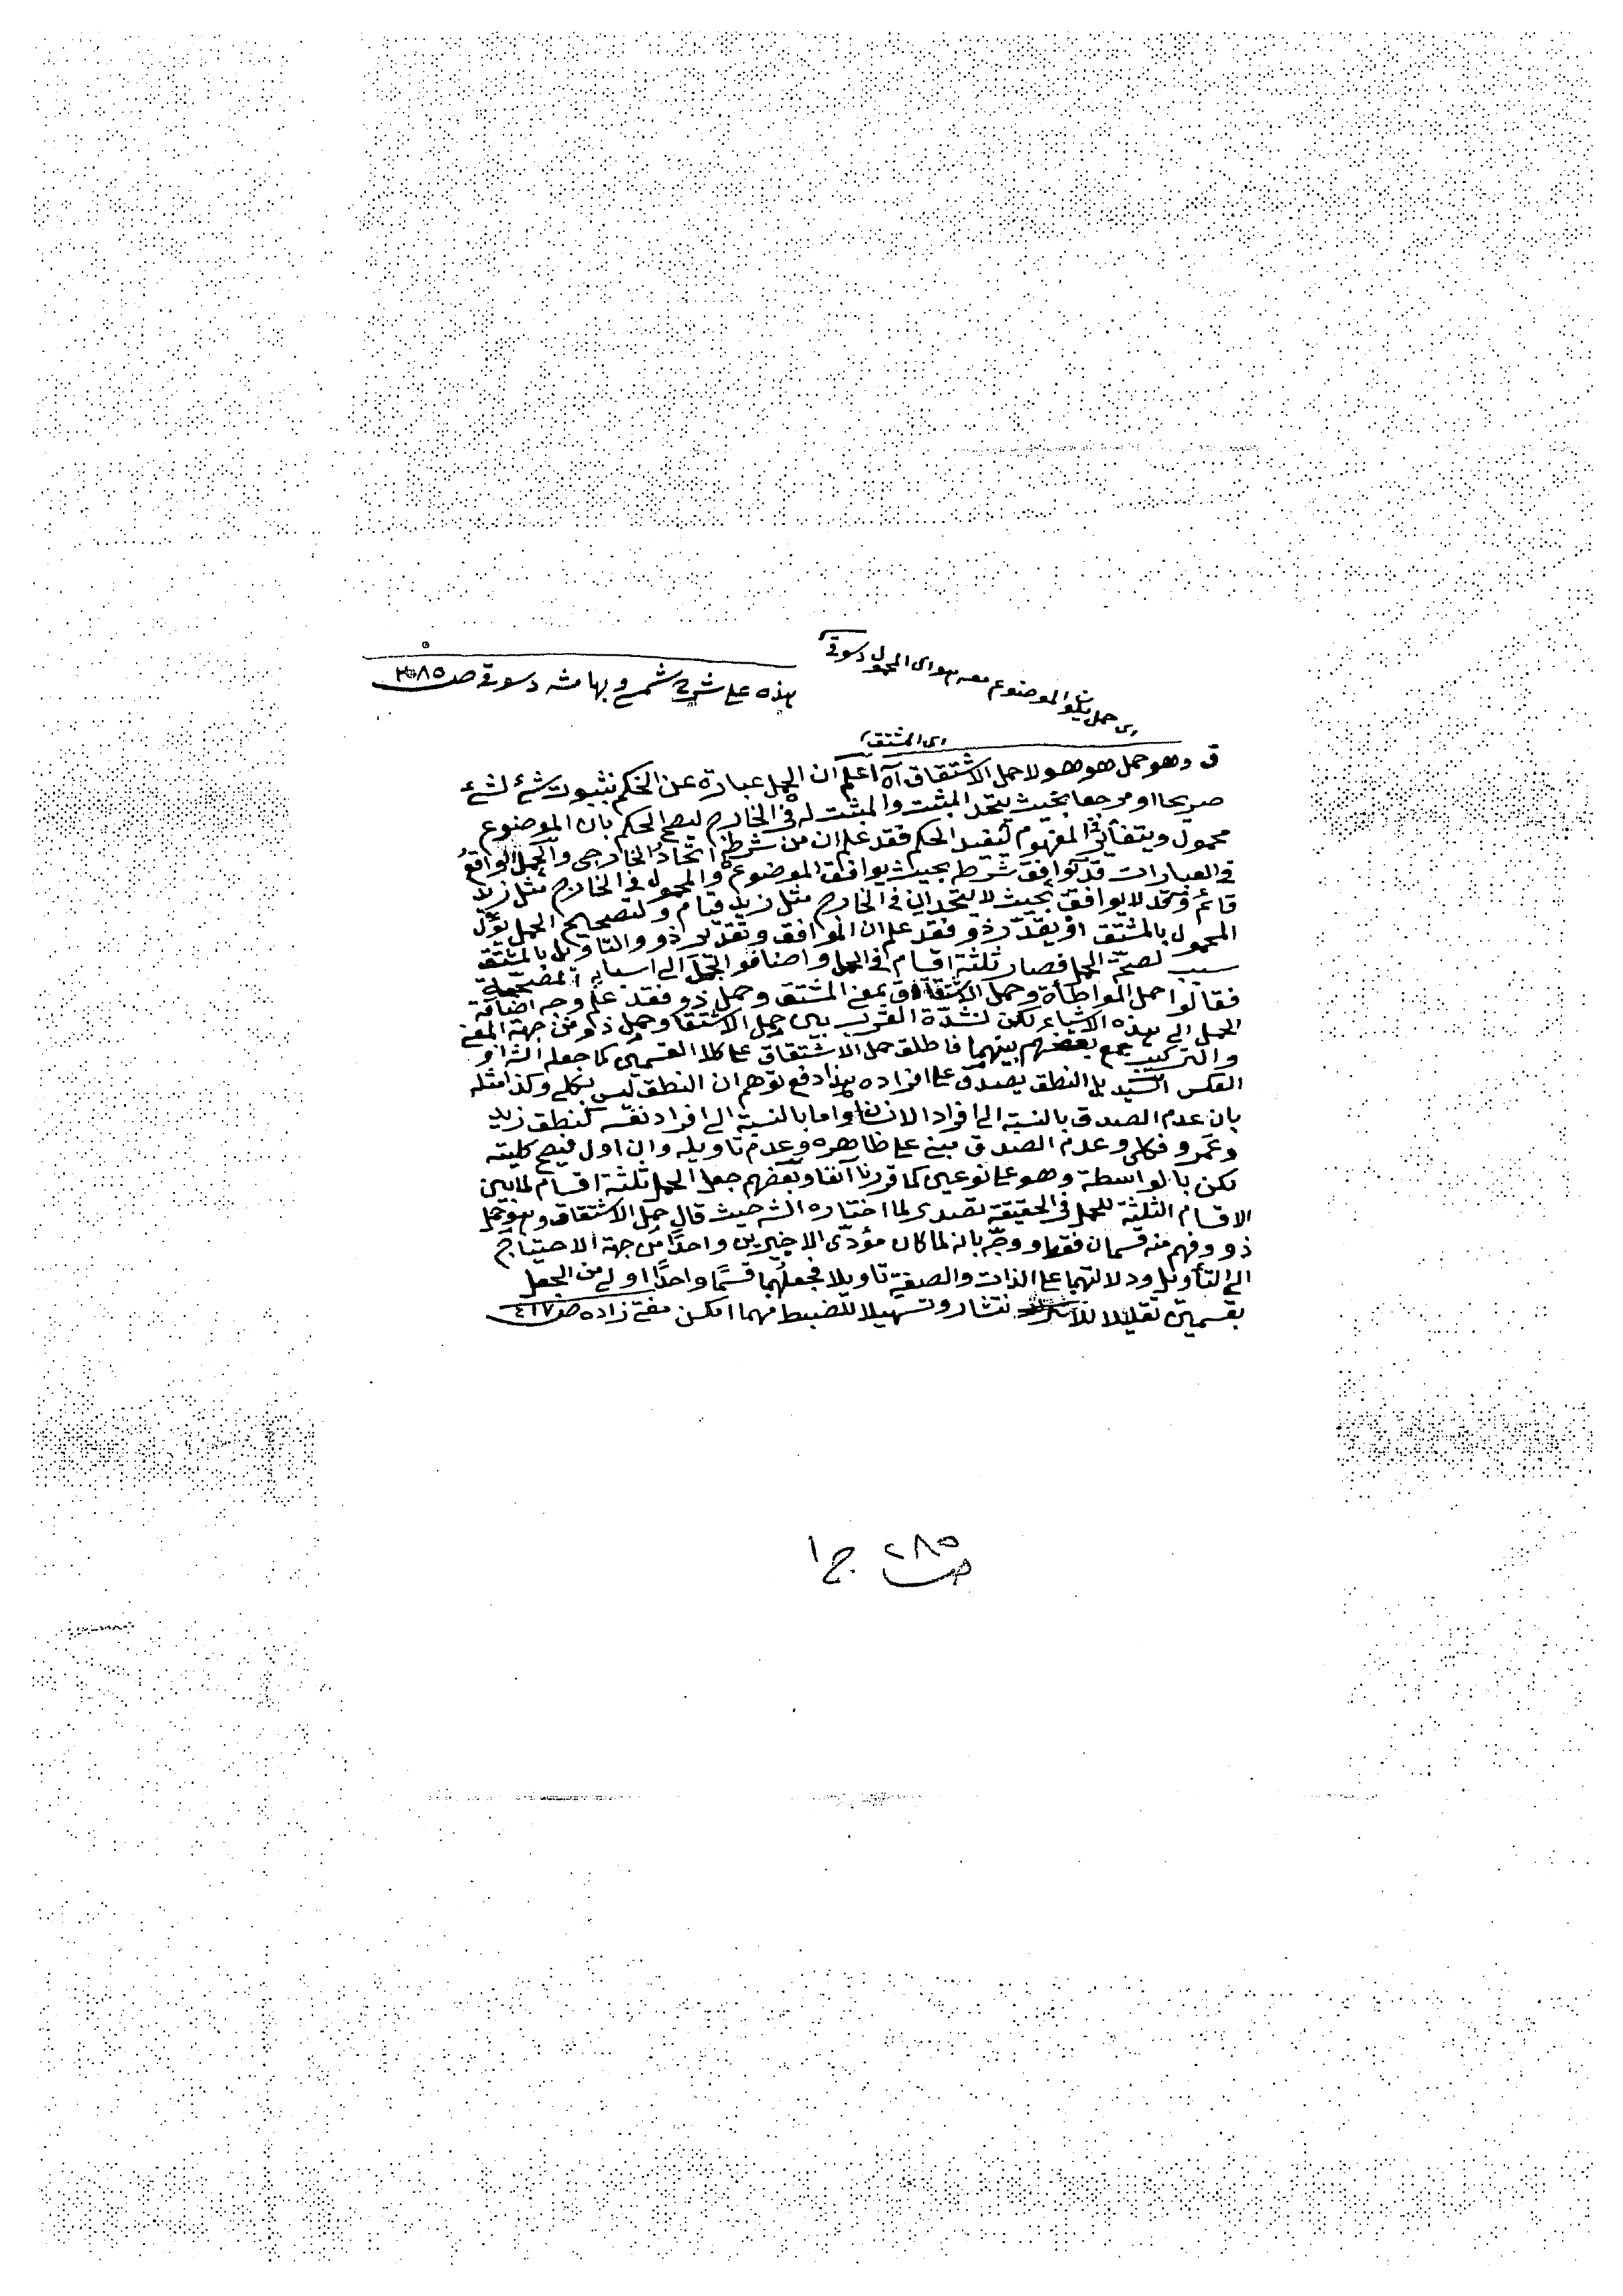 اى حمل يكون الموضوع معه هو اى المحمول دسوقى
هذه على شرح شمسى وبهامشه دسوقى صـ ٢٨٥
اى المشتق
ق وهو حمل هو هو لا حمل الاشتقاق آه اعلم ان الحمل عبارة عن الحكم بثبوت شئ لشئ
صريحا او مرجعا بحيث يتحد المثبت والمثبت له فى الخارج ليصح الحكم بان الموضوع
محمول ويتغاير فى المفهوم ليفيد الحكم فقد علم ان من شرطه اتحاد الخارجى والحمل الواقع
فى العبارات قد توافق شرطه بحيث يوافق الموضوع والمحمول فى الخارج مثل زيد
قائم وقد لا يوافق بحيث لا يتحدان فى الخارج مثل زيد قيام ولتصحيح الحمل يؤل
المحمول بالمشتق او يقدر ذو فقد علم ان الموافق وتقدير ذو والتاويل بالمشتق
سبب لصحة الحمل فصار ثلثة اقسام فى الحمل واضافوا الحمل الى اسبابه المصححة
فقالوا حمل المواطأة وحمل الاشتقاق بمعنى المشتق وحمل ذو فقد علم وجه اضافة
الحمل الى هذه الاشياء لكن لشدة القرب بين حمل الاشتقاق وحمل ذو من جهة المعنى
والتركيب جمع بعضهم بينهما فاطلق حمل الاشتقاق على كلا القسمين كما جعله الشه او
العكس السيد بل النطق يصدق على افراده بهذا دفع توهم ان النطق ليس بكلى وكذا مثله
بان عدم الصدق بالنسبة الى افراد الانسان واما بالنسبة الى افراد نفسه كنطق زيد
وعمرو فكلى وعدم الصدق مبنى على ظاهره وعدم تاويله وان اول فيصح كليته
لكن بالواسطة وهو على نوعين كما قررنا آنفا وبعضهم جعل الحمل ثلثة اقسام لما بين
الاقسام الثلثة للحمل فى الحقيقة تصدى لما اختاره الشه حيث قال حمل الاشتقاق وهو حمل
ذو وفهم منه قسمان فقط ووجه بانه لما كان مؤدى الاخيرين واحدًا من جهة الاحتياج
الى التأويل ودلالتهما على الذات والصفة تاويلا فجعلهما قسمًا واحدًا اولى من الجعل
بقسمين تقليلا للانتشار وتسهيلا للضبط مهما امكن مفتى زاده صـ ٤١٧
صـ ٢٨٥ ج ١